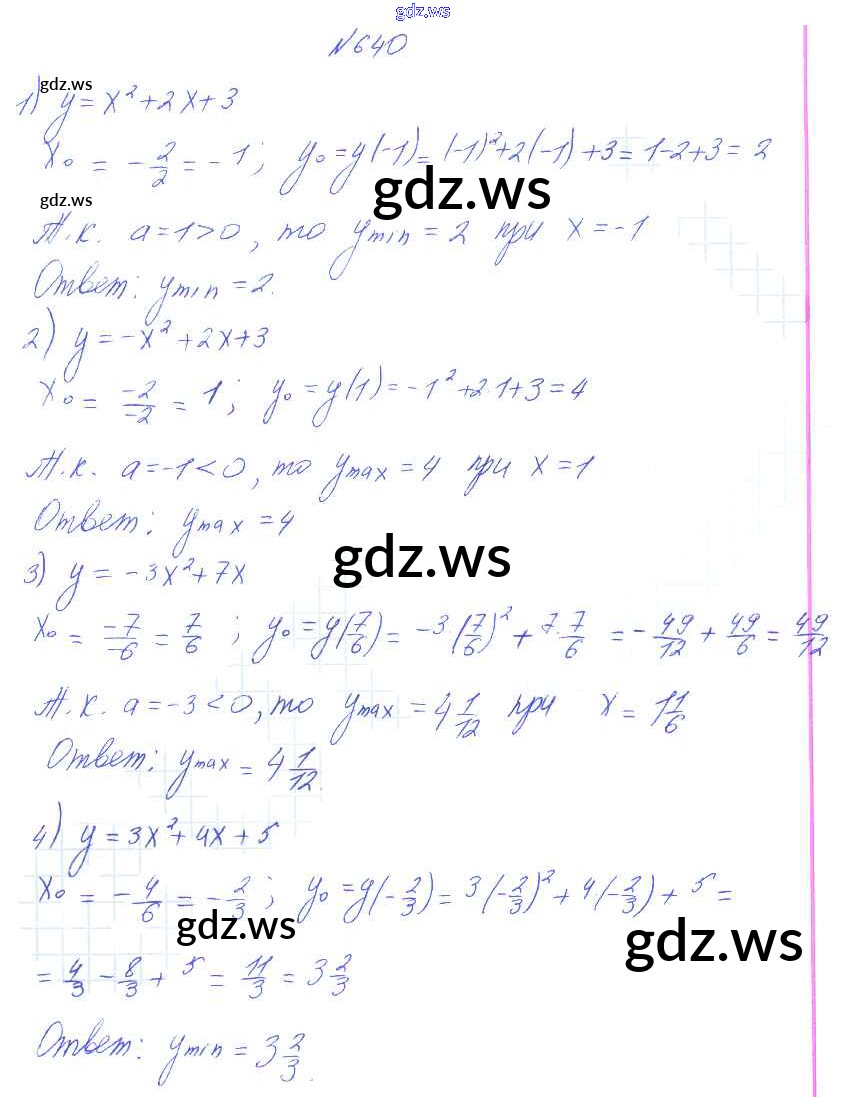 gdz.ws
N 640
gdz.ws
1) y = x² + 2x + 3
x₀ = -2/2 = -1; y₀ = y(-1) = (-1)² + 2(-1) + 3 = 1-2+3 = 2
gdz.ws
gdz.ws
Т.к. a = 1 > 0, то y min = 2 при x = -1
Ответ: y min = 2.
2) y = -x² + 2x + 3
x₀ = -2/-2 = 1; y₀ = y(1) = -1² + 2·1 + 3 = 4
Т.к. a = -1 < 0, то y max = 4 при x = 1
Ответ: y max = 4
gdz.ws
3) y = -3x² + 7x
x₀ = -7/-6 = 7/6; y₀ = y(7/6) = -3·(7/6)² + 7·7/6 = -49/12 + 49/6 = 49/12
Т.к. a = -3 < 0, то y max = 4 1/12 при x = 1 1/6
Ответ: y max = 4 1/12.
4) y = 3x² + 4x + 5
x₀ = -4/6 = -2/3; y₀ = y(-2/3) = 3·(-2/3)² + 4·(-2/3) + 5 =
gdz.ws
gdz.ws
= 4/3 - 8/3 + 5 = 11/3 = 3 2/3
Ответ: y min = 3 2/3.